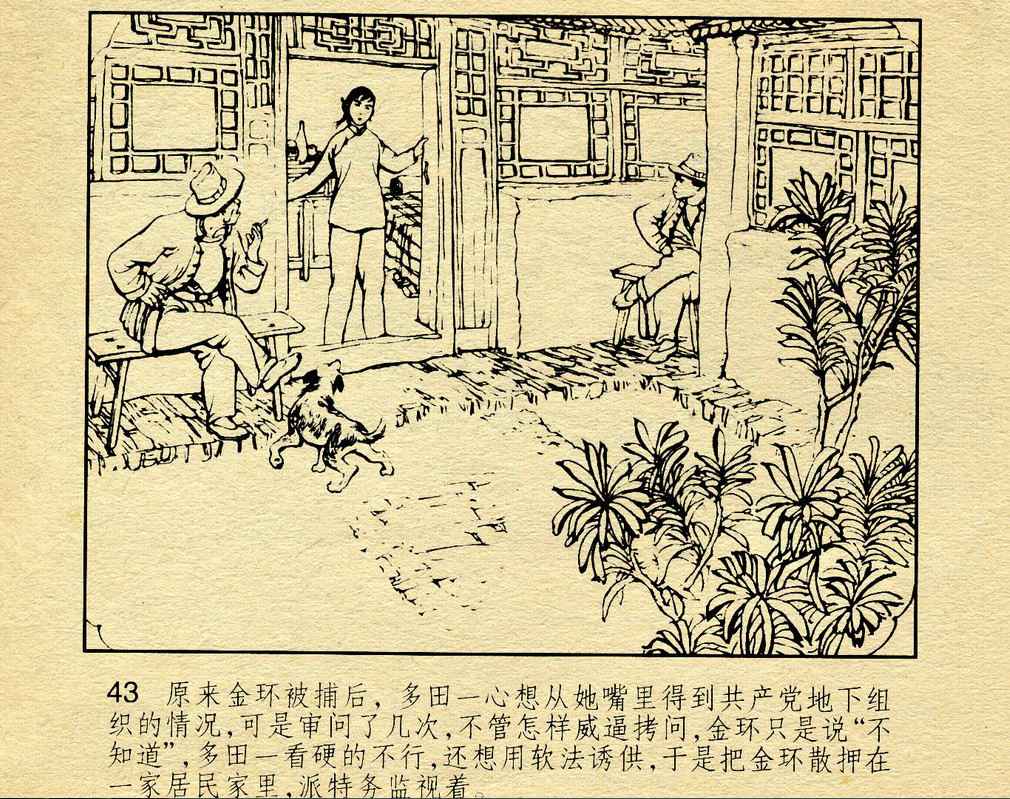 43 原来金环被捕后，多田一心想从她嘴里得到共产党地下组
织的情况，可是审问了几次，不管怎样威逼拷问，金环只是说“不
知道”，多田一看硬的不行，还想用软法诱供，于是把金环散押在
一家居民家里，派特务监视着。